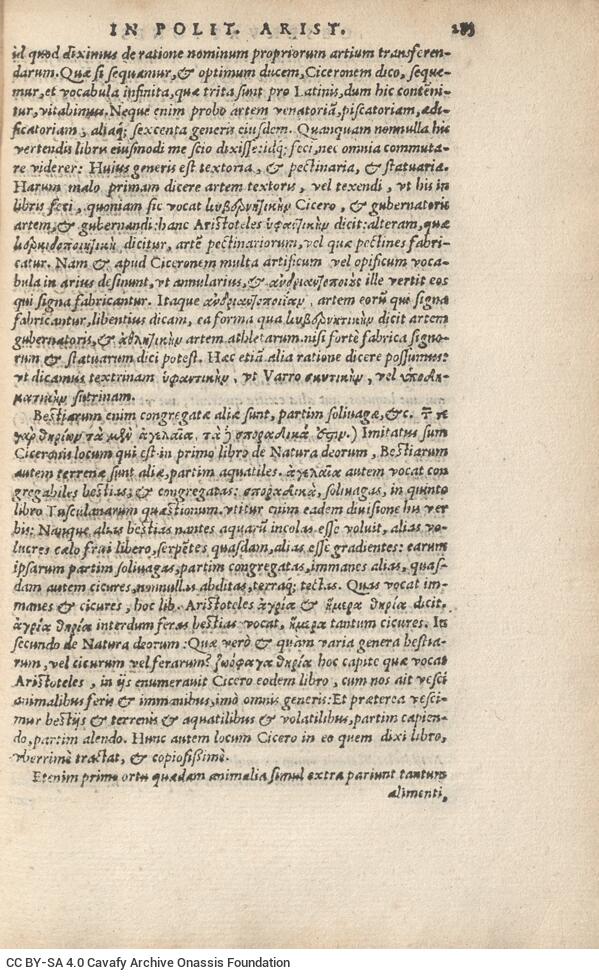 IN POLIT. ARIST.
id quod diximus de ratione nominum propriorum artium transferen-
darum. Quæ si sequamur, & optimum ducem, Ciceronem dico, seque-
mur, et vocabula infinita, quæ trita sunt pro Latinis, dum hic contēni-
tur, vitabimus. Neque enim probo artem venatoriā, piscatoriam, ædi-
ficatoriam, aliaq; sexcenta generis eiusdem. Quanquam nonnulla his
vertendis libris eiusmodi me scio dixisse: idq; feci, nec omnia commuta-
re viderer: Huius generis est textoria, & pectinaria, & statuaria.
Harum malo primam dicere artem textoris, vel texendi, vt his in
libris feci, quoniam sic vocat κυβερνητικὴν Cicero, & gubernatoris
artem, & gubernandi: hanc Aristoteles ὑφαντικὴν dicit: alteram, quæ
κερκιδοποιητικὴ dicitur, artē pectinariorum, vel quæ pectines fabri-
catur. Nam & apud Ciceronem multa artificum vel opificum voca-
bula in arius desinunt, vt annularius, & ἀνδριαντοποιὸς ille vertit eos
qui signa fabricantur. Itaque ἀνδριαντοποιίαν, artem eorū qui signa
fabricantur, libentius dicam, ea forma qua κυβερνητικὴν dicit artem
gubernatoris, & ἀθλητικὴν artem athletarum. nisi fortè fabrica signo-
rum & statuarum dici potest. Hac etiā alia ratione dicere possumus:
vt dicamus textrinam ὑφαντικὴν, vt Varro σκυτικὴν, vel ὑποδη-
ματικὴν sutrinam.
Bestiarum enim congregatæ aliæ sunt, partim soliuagæ, &c. τ τε
γὰρ θηρίων τὰ μὲν ἀγελαῖα, τὰ ἢ σποραδικά ἐστιν.) Imitatus sum
Ciceronis locum qui est in primo libro de Natura deorum, Bestiarum
autem terrenæ sunt aliæ, partim aquatiles. ἀγελαῖα autem vocat con
gregabiles bestias, & congregatas: σποραδικὰ, soliuagas, in quinto
libro Tusculanarum quæstionum. vtitur enim eadem diuisione his ver
bis: Nanque alias bestias nantes aquarū incolas esse voluit, alias vo-
lucres cælo frui libero, serpētes quasdam, alias esse gradientes: earum
ipsarum partim soliuagas, partim congregatas, immanes alias, quas-
dam autem cicures, nonnullas abditas, terraq; tectas. Quas vocat im-
manes & cicures, hoc lib. Aristoteles ἄγρια & ἥμερα θηρία dicit.
ἄγρια θηρία interdum feras bestias vocat, ἥμερα tantum cicures. In
secundo de Natura deorum: Quæ verò & quàm varia genera bestia-
rum, vel cicurum vel ferarum? ζωοφάγα θηρία hoc capite quæ vocat
Aristoteles, in ijs enumerauit Cicero eodem libro, cum nos ait vesci
animalibus feris & immanibus, imò omnis generis: Et præterea vesci-
mur bestijs & terrenis & aquatilibus & volatilibus, partim capien-
do, partim alendo. Hunc autem locum Cicero in eo quem dixi libro,
vberrimè tractat, & copiosissimè.
Etenim primo ortu quædam animalia simul extra pariunt tantum
alimenti,
CC BY-SA 4.0 Cavafy Archive Onassis Foundation